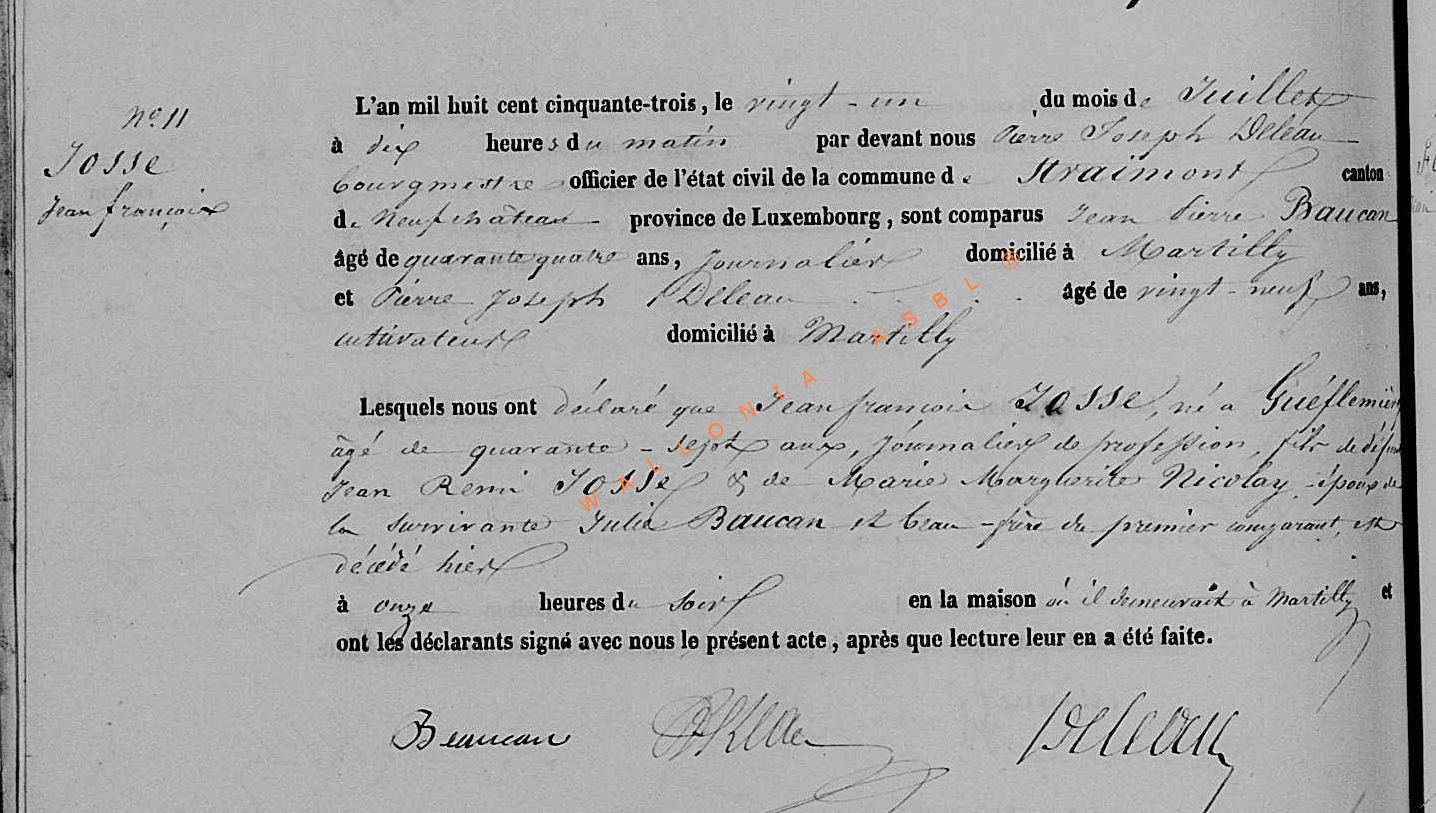 N° 11
Josse
Jean françois
L'an mil huit cent cinquante-trois, le vingt-un du mois de Juillet
à dix heures du matin par devant nous Pierre Joseph Deleau
bourgmestre officier de l'état civil de la commune de Straimont canton
de Neufchâteau province de Luxembourg, sont comparus Jean Pierre Baucan
âgé de quarante quatre ans, journalier domicilié à Martilly
et Pierre Joseph Deleau âgé de vingt-neuf ans,
cultivateur domicilié à Martilly
Lesquels nous ont déclaré que Jean françois Josse, né a
âgé de quarante-sept ans, journalier de profession, fils de
Jean Remi Josse & de Marie Margherite Nicolay époux de
la survivante Julie Baucan et beau-frère du premier comparant, est
décédé hier
à onze heures du soir en la maison où il demeurait à Martilly et
ont les déclarants signé avec nous le présent acte, après que lecture leur en a été faite.
Beaucan Deleau
WALLONIA ASBL ®